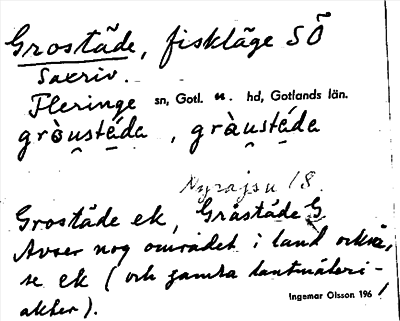 Groståde, fiskläge SÖ
Saxriv.
Fleringe sn, Gotl. n. hd, Gotlands län.
gròustéda, gràustéda
Nyrajsu 18.
Groståde ek, Gråståde G
Avser nog området i land också,
se ek (och gamla lantmäteri-
akter).
Ingemar Olsson 196